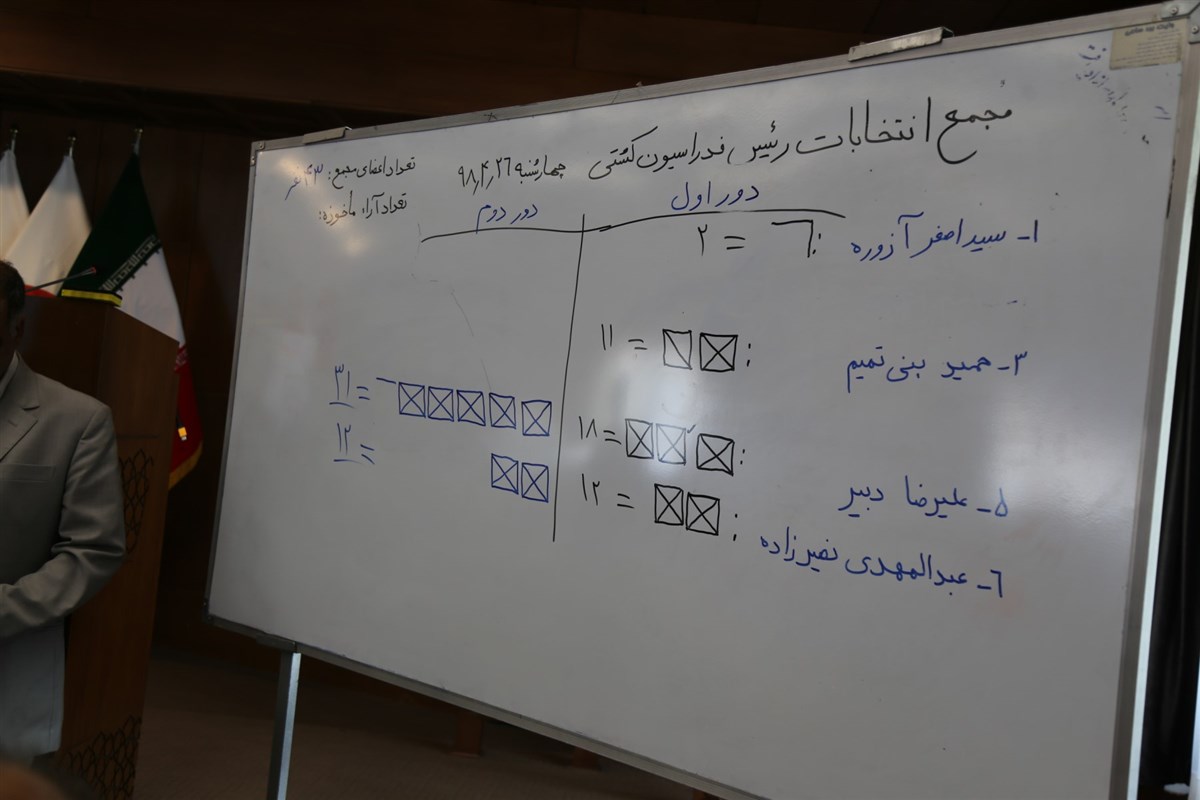 مجمع انتخابات رئیس فدراسیون کشتی چهارشنبه ۹۸٫۴٫۲۶
تعداد اعضای مجمع: ۴۳ نفر
تعداد آراء ماخوزه:
دور اول
دور دوم
۱- سید اصغر آذوره : = ۲
۳- حمید بنی تمیم : = ۱۱
۵- علیرضا دبیر : = ۱۸ = ۳۱
۶- عبدالمهدی نصیرزاده : = ۱۲ = ۱۲